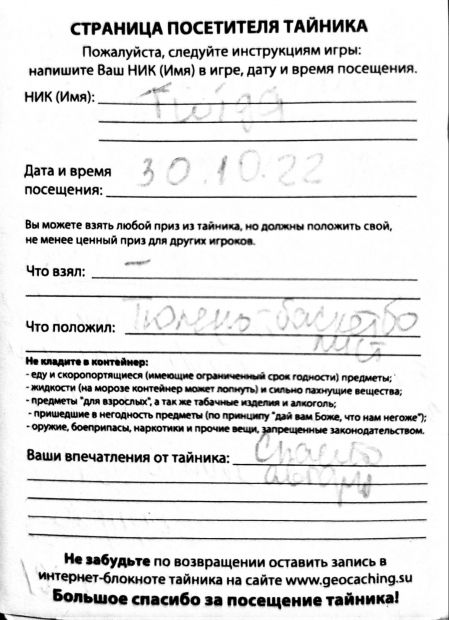 СТРАНИЦА ПОСЕТИТЕЛЯ ТАЙНИКА
Пожалуйста, следуйте инструкциям игры:
напишите Ваш НИК (Имя) в игре, дату и время посещения.
НИК (Имя):
Дата и время 30.10.22
посещения:
Вы можете взять любой приз из тайника, но должны положить свой,
не менее ценный приз для других игроков.
Что взял: —
Что положил: Тюлень-баскетбо
лист
Не кладите в контейнер:
- еду и скоропортящиеся (имеющие ограниченный срок годности) предметы;
- жидкости (на морозе контейнер может лопнуть) и сильно пахнущие вещества;
- предметы "для взрослых", а так же табачные изделия и алкоголь;
- пришедшие в негодность предметы (по принципу "дай вам Боже, что нам негоже");
- оружие, боеприпасы, наркотики и прочие вещи, запрещенные законодательством.
Ваши впечатления от тайника: Спасибо
Не забудьте по возвращении оставить запись в
интернет-блокноте тайника на сайте www.geocaching.su
Большое спасибо за посещение тайника!